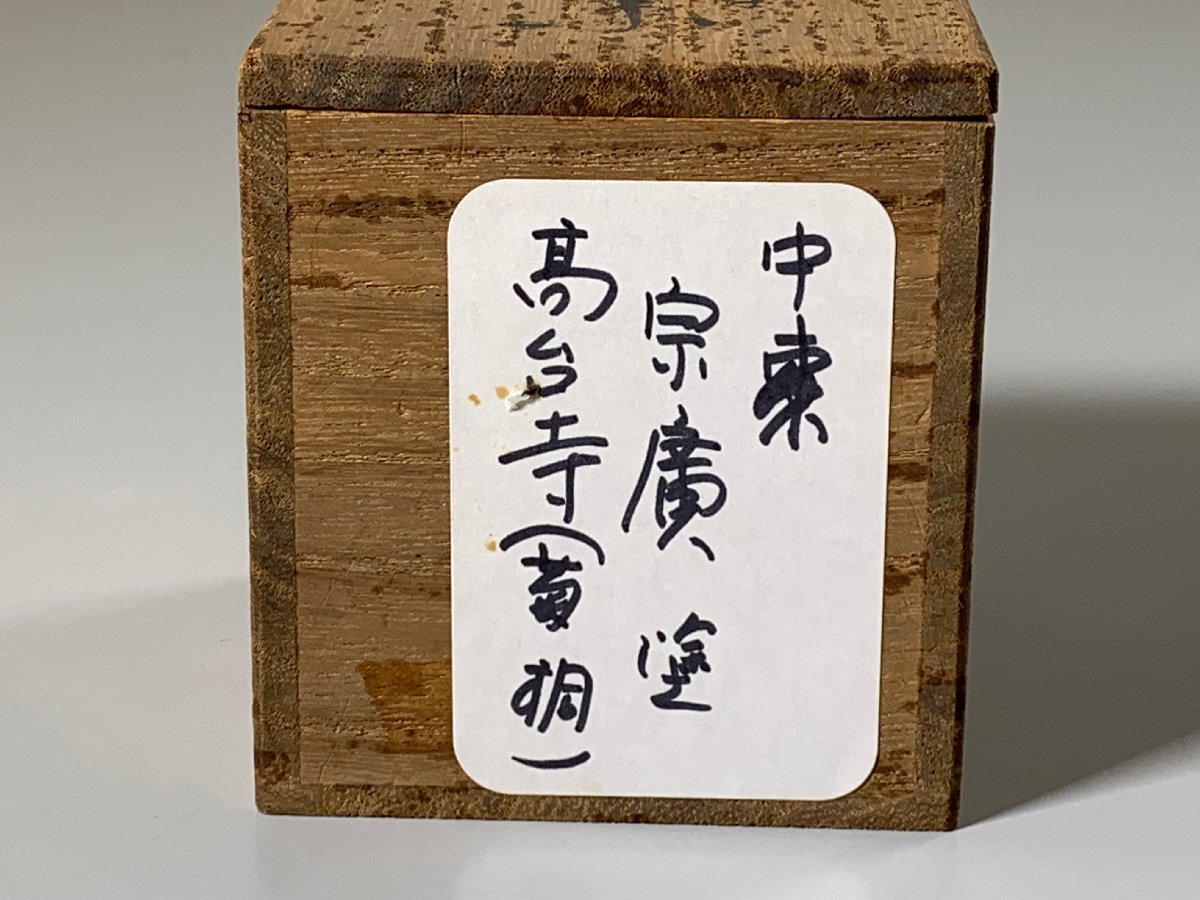 中棗
宗廣 塗
高台寺(菊桐)